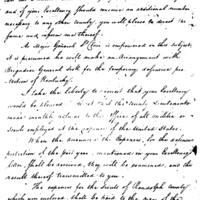 and if your Excellency should receive an additional number
necessary to any other county, you will please to direct the
same and inform me thereof.
As Major General St Clair is empowered on this subject,
it is presumed he will make an arrangement with
Brigadier General Scott for the temporary defensive pro-
tection of Kentucky.
I take the liberty to submit that your Excellency
would be pleased to the County Lieutenants
make monthly returns to the Office of all militia or
Scouts employed at the expence of the United States.
When the accounts the expences, for the defensive
protection of the just mentioned in your Excellency's
letter, shall be received, they will be examined, and the
result thereof transmitted to you.
The expence for the Scouts of Randolph County
which you enclosed, shall be paid to the